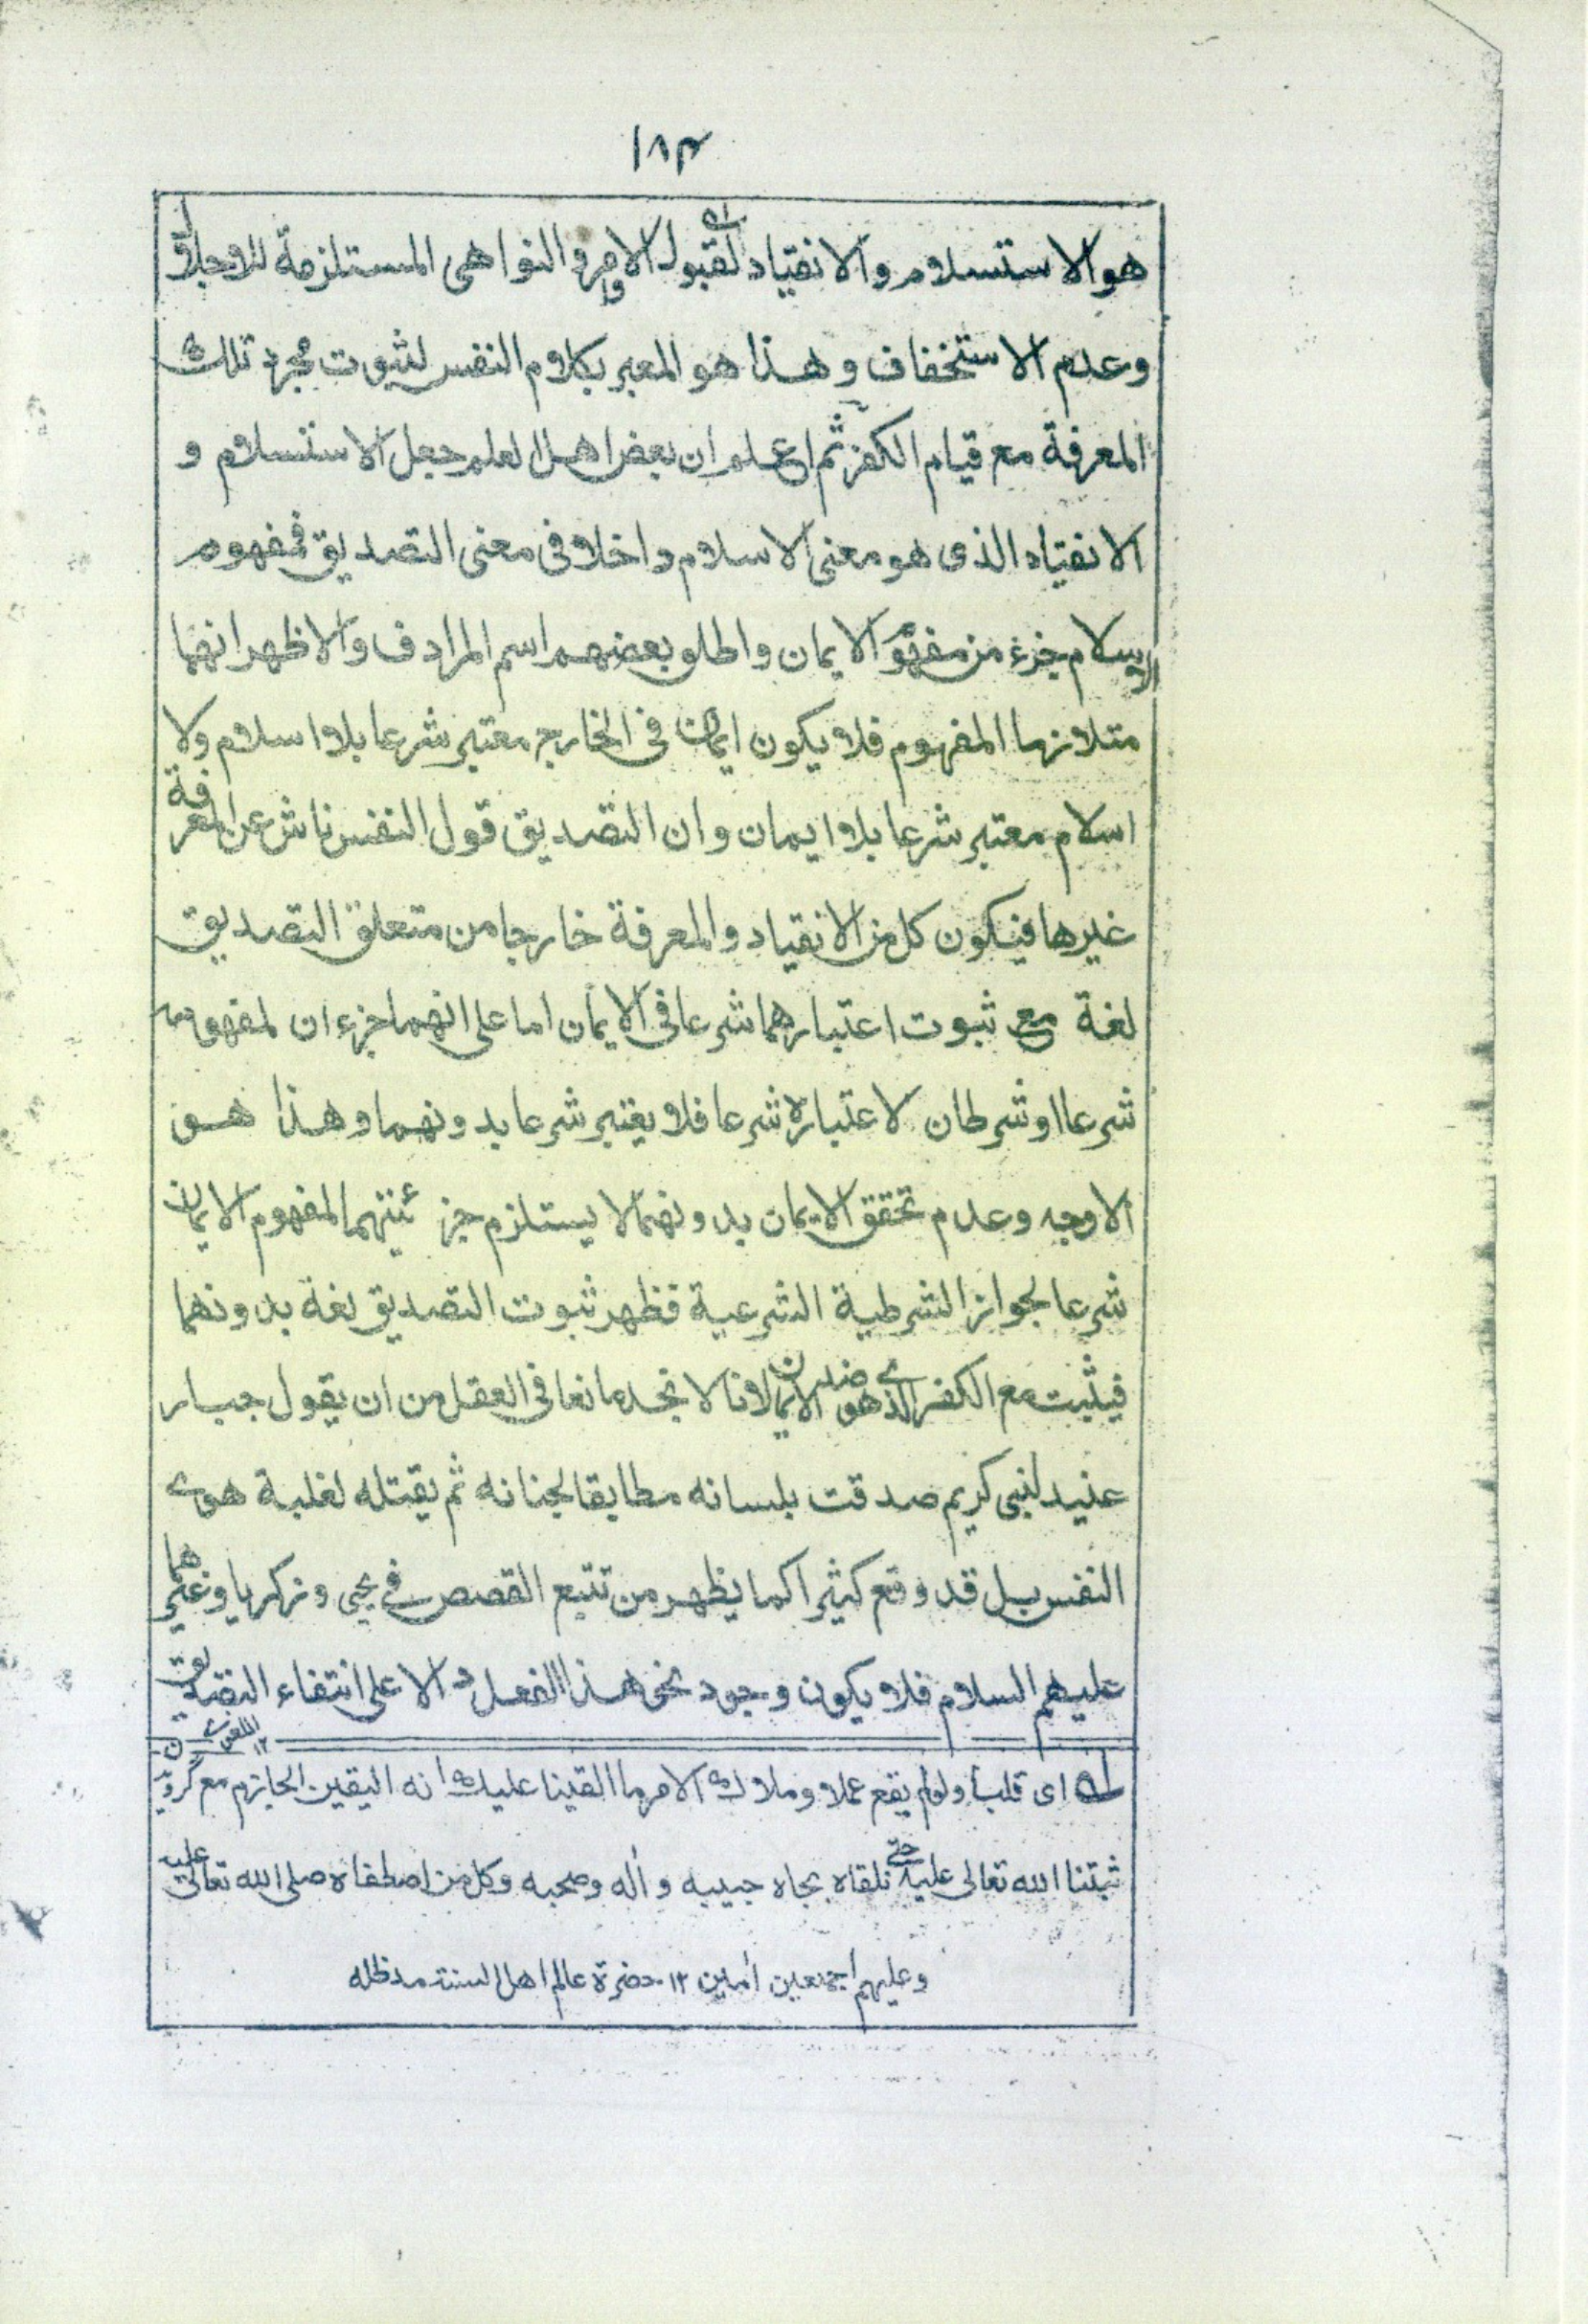 ١٨٣
هو الاستسلام والانقياد لقبول الاوامر والنواهى المستلزمة للاجلال
وعدم الاستخفاف وهذا هو المعبر بكلام النفس لثبوت مجرد تلك
المعرفة مع قيام الكفر ثم اعلم ان بعض اهل العلم جعل الاستسلام و
الانقياد الذى هو معنى الاسلام داخلا فى معنى التصديق فمفهوم
الاسلام جزء من مفهوم الايمان واطلق بعضهم اسم المرادف والاظهر انهما
متلازما المفهوم فلا يكون ايمان فى الخارج معتبر شرعا بلا اسلام ولا
اسلام معتبر شرعا بلا ايمان وان التصديق قول النفس ناش عن المعرفة
غيرها فيكون كل من الانقياد والمعرفة خارجا من متعلق التصديق
لغة مع ثبوت اعتبارهما شرعا فى الايمان اما على انهما جزءان لمفهومه
شرعا او شرطان لاعتباره شرعا فلا يعتبر شرعا بدونهما وهذا هو
الاوجه وعدم تحقق الايمان بدونهما لا يستلزم جزئيتهما لمفهوم الايمان
شرعا لجواز الشرطية الشرعية فظهر ثبوت التصديق لغة بدونهما
فيثبت مع الكفر الذى هو ضد الايمان لانا لا نجد مانعا فى العقل من ان يقول جبار
عنيد لنبى كريم صدقت بلسانه مطابقا لجنانه ثم يقتله لغلبة هوى
النفس بل قد وقع كثيرا كما يظهر من تتبع القصص فى يحيى وزكريا وغيرهما
عليهم السلام فلا يكون وجود نحو هذا الفعل دالا على انتفاء التصديق
اللغوى ١٢
اى قلبا ولو لم يقع عملا وملاك الامر ما القينا عليك انه اليقين الجازم مع گرويدن
ثبتنا الله تعالى عليه حتى نلقاه بجاه حبيبه وأله وصحبه وكل من اصطفاه صلى الله تعالى عليه
وعليهم اجمعين أمين ١٢ حضرة عالم اهل السنة مدظله